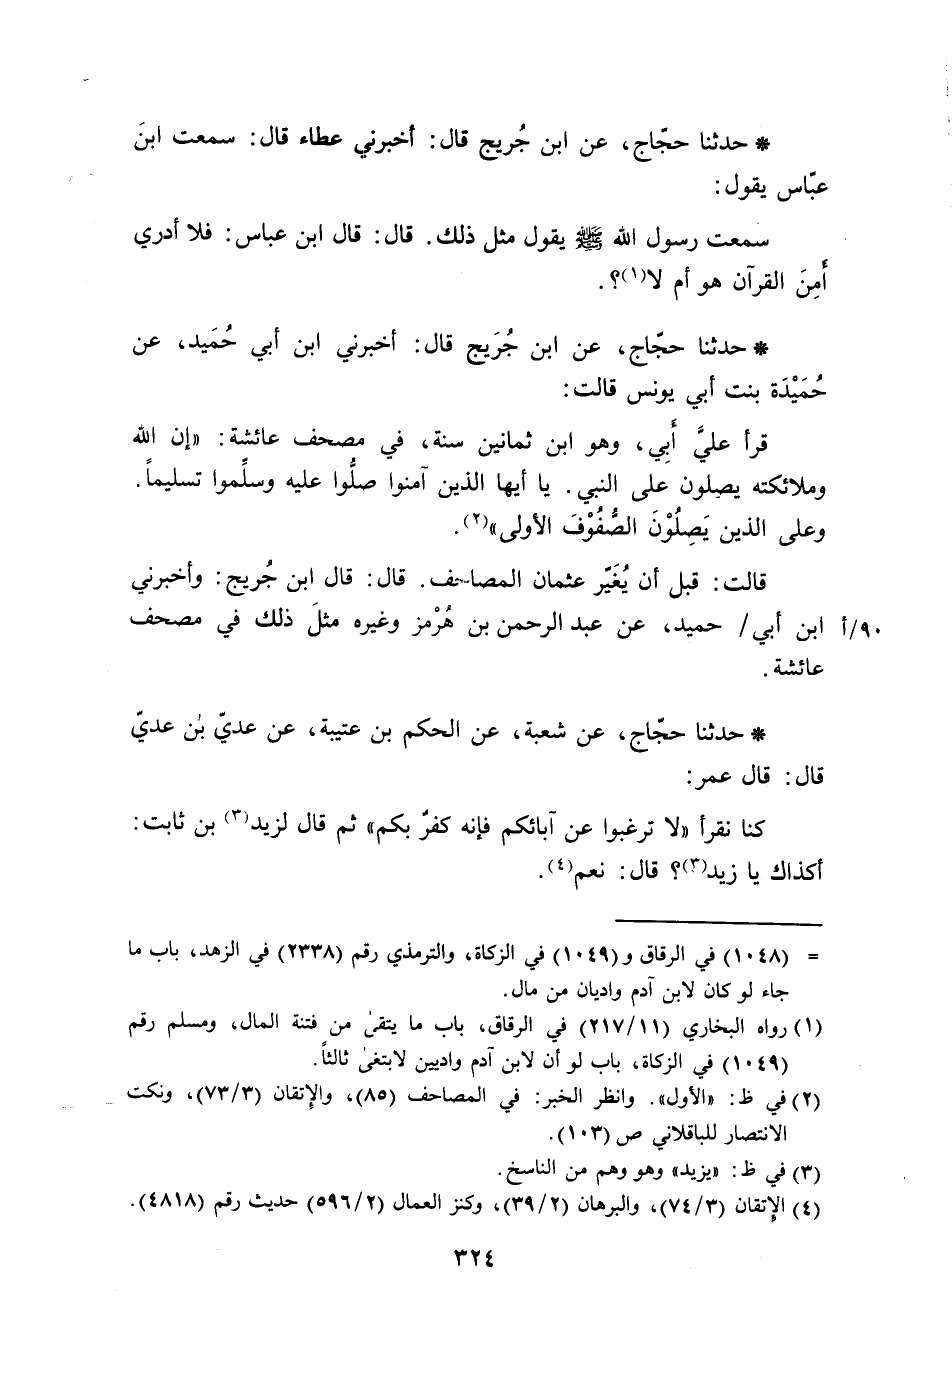 * حدثنا حجّاج، عن ابن جُريج قال: أخبرني عطاء قال: سمعت ابنَ
عبّاس يقول:
سمعت رسول الله ﷺ يقول مثل ذلك. قال: قال ابن عباس: فلا أدري
أَمِنَ القرآن هو أم لا(١)؟.
* حدثنا حجّاج، عن ابن جُرَيج قال: أخبرني ابن أبي حُمَيد، عن
حُمَيْدَة بنت أبي يونس قالت:
قرأ عليَّ أَبِي، وهو ابن ثمانين سنة، في مصحف عائشة: «إن الله
وملائكته يصلون على النبي. يا أيها الذين آمنوا صلُّوا عليه وسلِّموا تسليماً.
وعلى الذين يَصِلُوْنَ الصُّفُوْفَ الأولى»(٢).
قالت: قبل أن يُغَيّر عثمان المصاحف. قال: قال ابن جُريج: وأخبرني
٩٠/أ ابن أبي/ حميد، عن عبد الرحمن بن هُرْمز وغيره مثلَ ذلك في مصحف
عائشة.
* حدثنا حجّاج، عن شعبة، عن الحكم بن عتيبة، عن عديّ بن عديّ
قال: قال عمر:
كنا نقرأ «لا ترغبوا عن آبائكم فإنه كفرٌ بكم» ثم قال لزيد(٣) بن ثابت:
أكذاك يا زيد(٣)؟ قال: نعم(٤).
= (١٠٤٨) في الرقاق و(١٠٤٩) في الزكاة، والترمذي رقم (٢٣٣٨) في الزهد، باب ما
جاء لو كان لابن آدم واديان من مال.
(١) رواه البخاري (٢١٧/١١) في الرقاق، باب ما يتقىٰ من فتنة المال، ومسلم رقم
(١٠٤٩) في الزكاة، باب لو أن لابن آدم واديين لابتغىٰ ثالثاً.
(٢) في ظ: «الأول». وانظر الخبر: في المصاحف (٨٥)، والإتقان (٧٣/٣)، ونكت
الانتصار للباقلاني ص (١٠٣).
(٣) في ظ: «يزيد» وهو وهم من الناسخ.
(٤) الإتقان (٧٤/٣)، والبرهان (٣٩/٢)، وكنز العمال (٥٩٦/٢) حديث رقم (٤٨١٨).
٣٢٤